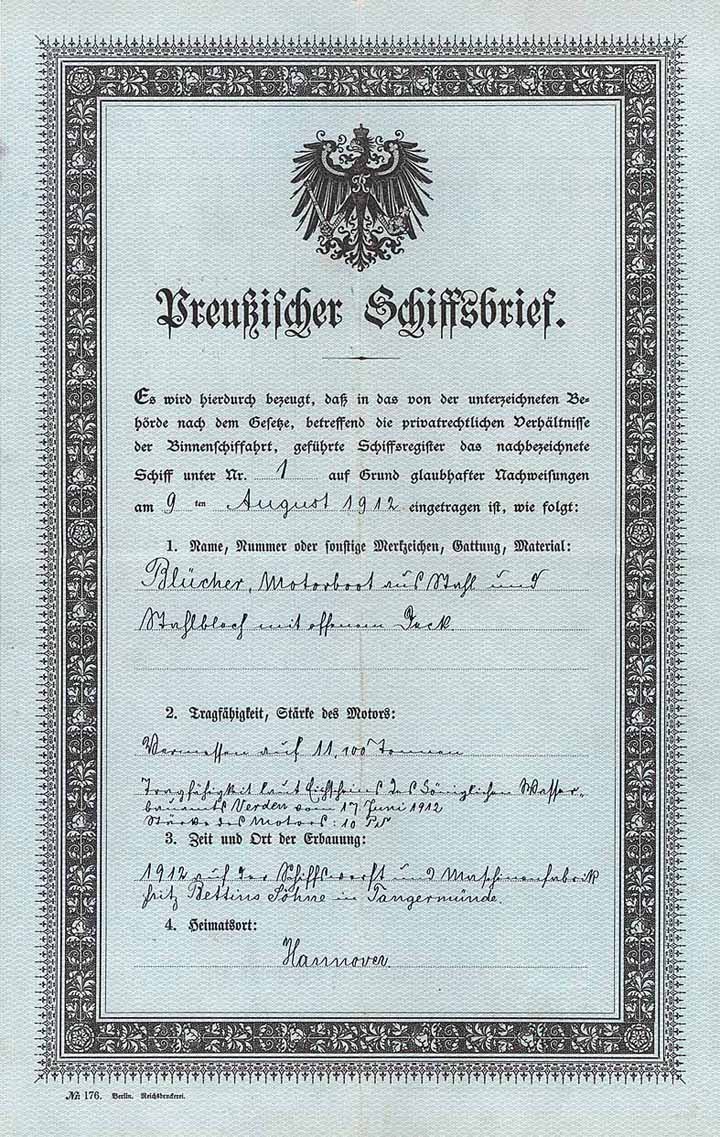 Preußischer Schiffsbrief.
Es wird hierdurch bezeugt, daß in das von der unterzeichneten Be-
hörde nach dem Gesetze, betreffend die privatrechtlichen Verhältnisse
der Binnenschiffahrt, geführte Schiffsregister das nachbezeichnete
Schiff unter Nr. 1 auf Grund glaubhafter Nachweisungen
am 9 ten August 1912 eingetragen ist, wie folgt:
1. Name, Nummer oder sonstige Merkzeichen, Gattung, Material:
Blücher, Motorboot aus Stahl und
Stahlblech mit offenem Deck.
2. Tragfähigkeit, Stärke des Motors:
Vermessen auf 11,100 Tonnen
Tragfähigkeit laut Eichscheins des Königlichen Wasser-
bauamts Verden vom 17 Juni 1912
Stärke des Motors: 10 PS
3. Zeit und Ort der Erbauung:
1912 auf der Schiffswerft und Maschinenfabrik
Fritz Söhne in Tangermünde.
4. Heimatsort:
Hannover.
№ 176. Berlin. Reichsdruckerei.